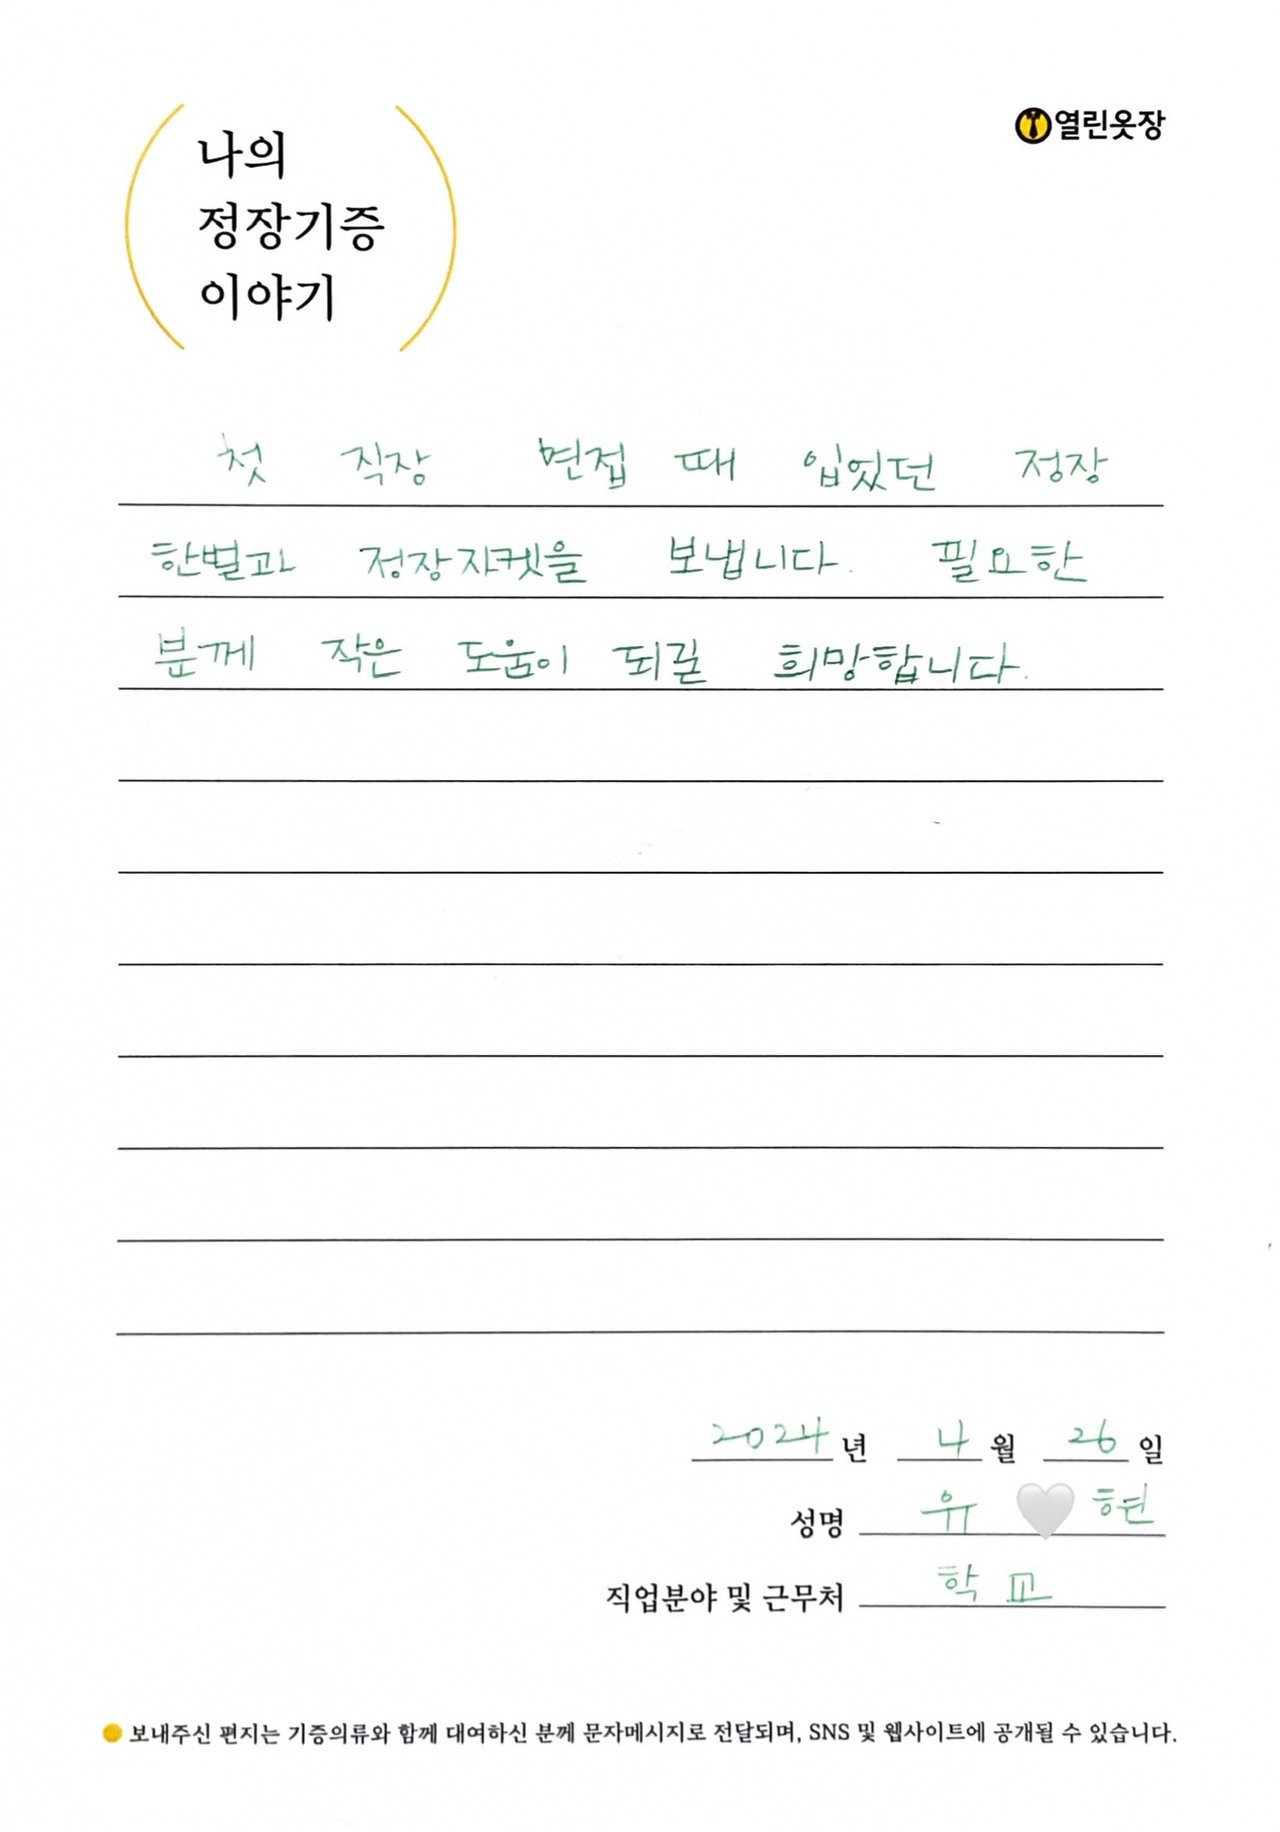 열린옷장
나의
정장기증
이야기
첫 직장 면접 때 입었던 정장
한벌과 정장자켓을 보냅니다. 필요한
분께 작은 도움이 되길 희망합니다.
2024년 4월 26일
성명 유 🤍 현
직업분야 및 근무처 학교
보내주신 편지는 기증의류와 함께 대여하신 분께 문자메시지로 전달되며, SNS 및 웹사이트에 공개될 수 있습니다.